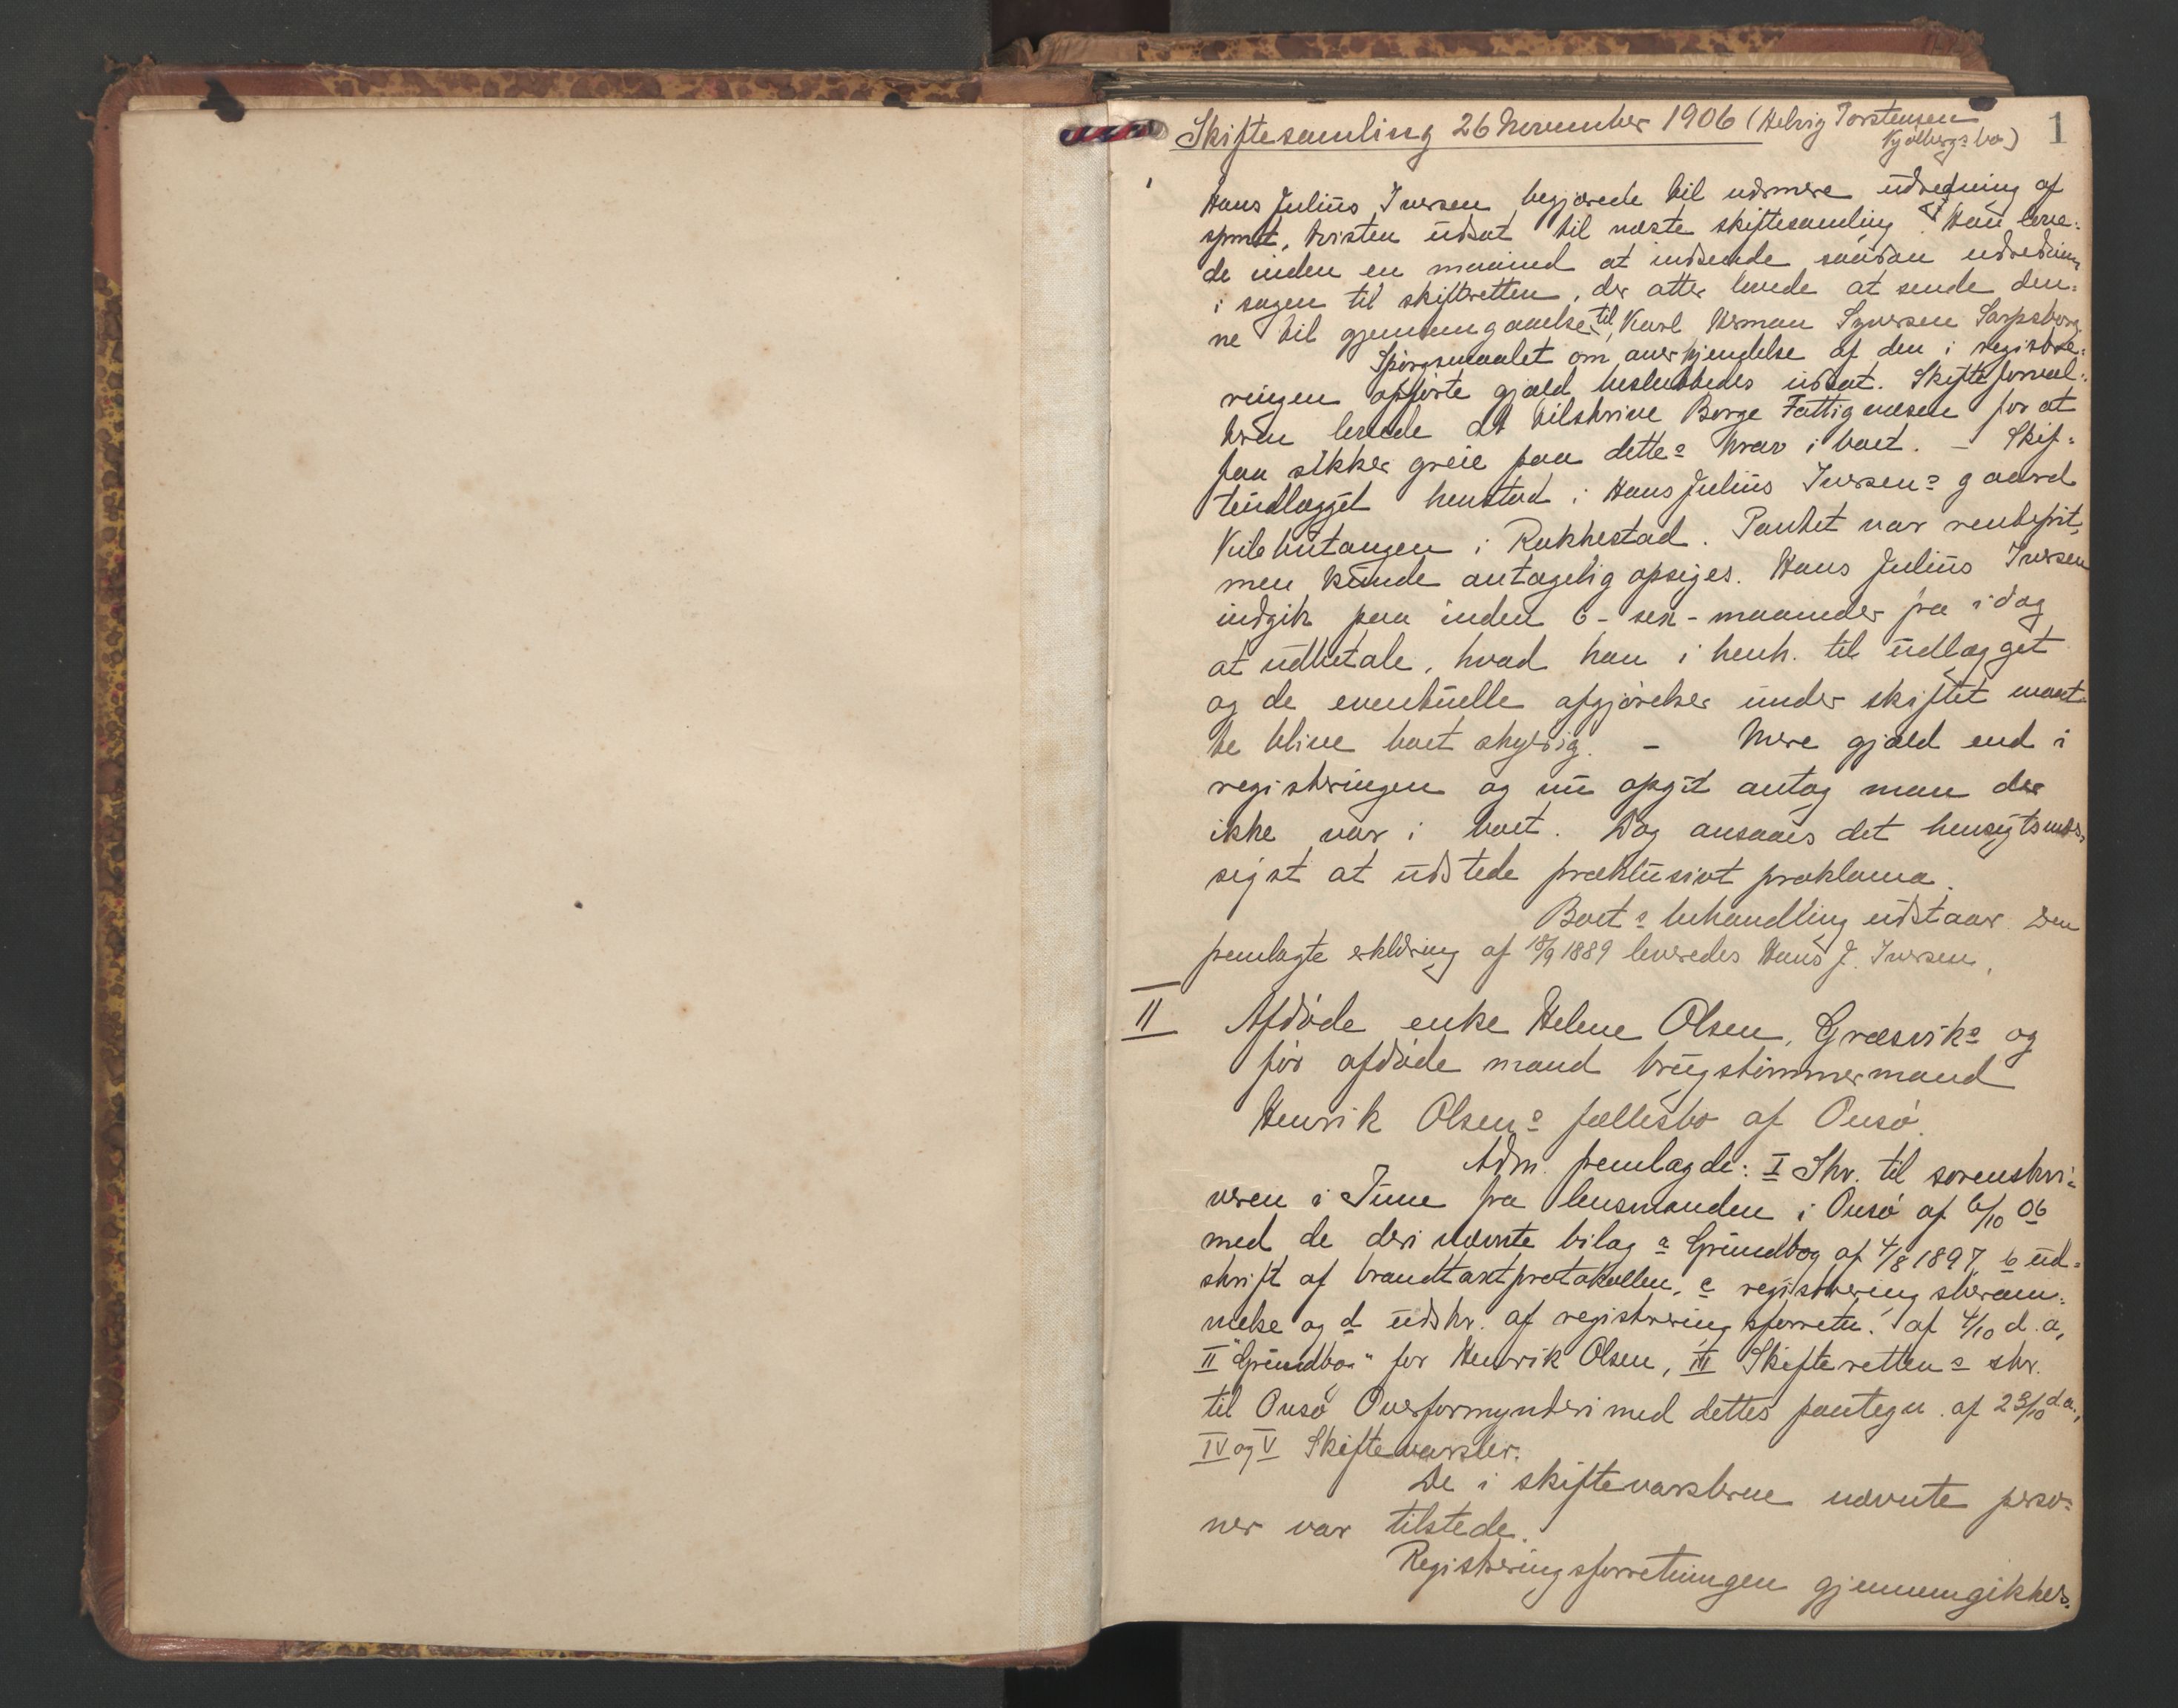 Skiftesamling 26 November 1906 (Helvig Torstensen
Kjølbergs bo) 1
Hans Julius Iversen begjærede til nærmere udredning af
spmt. tvisten udsat til næste skiftesamling. Han love-
de inden en maaned at indsende saadan udredning
i sagen til skifteretten, der atter lovede at sende den-
ne til gjennemgaaelse til Karl Herman Syversen Sarpsborg.
Spørgsmaalet om anerkjendelse af den i registre-
ringen opførte gjæld besluttedes udsat. Skifteforval-
teren lovede at tilskrive Borge Fattigvæsen for at
faa sikker greie paa dettes krav i boet. – Skif-
teudlægget henstod i Hans Julius Iversens gaard
i Rakkestad. Pantet var rentefrit,
men kunde antagelig opsiges. Hans Julius Iversen
indgik paa inden 6 - sex - maaneder fra idag
at udbetale, hvad han i henh. til udlægget
og de eventuelle afgjørelser under skiftet maat-
te blive boet skyldig. – Mere gjæld end i
registreringen og nu opgit antog man der
ikke var i boet. Dog ansaaes det hensigtsmæs-
sigst at udstede præklusivt proklama.
Boets behandling udstaar. Den
fremlagte erklæring af 18/9 1889 leveredes Hans J. Iversen.
II Afdøde enke Helene Olsen, Græsviks og
før afdøde mand brugstømmermand
Henrik Olsens fællesbo af Onsø.
Adm. fremlagde: I Skr. til sorenskri-
veren i Tune fra lensmanden i Onsø af 6/10 06
med de deri nævnte bilag a Grundbog af 4/8 1897, b ud-
skrift af brandtaxtprotokollen, c registreringskram-
melse og d udskr. af registreringsforretn. af 4/10 d.a.,
II "Grundbog" for Henrik Olsen, III Skifterettens skr.
til Onsø Overformynderi med dettes paategn. af 23/10 d.a.,
IV og V Skiftevarsler.
De i skiftevarslerne nævnte perso-
ner var tilstede.
Registreringsforretningen gjennemgikkes.